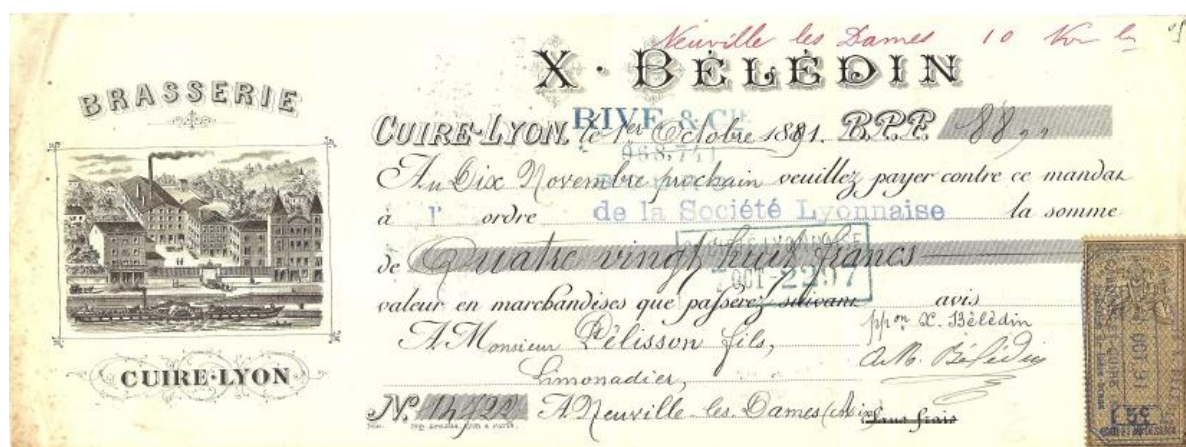 Neuville les Dames 10
X. BÉLÉDIN
BRASSERIE
RIVE & CIE
CUIRE-LYON, le 1er Octobre 1891. B.P.F. 88,"
968.741
Au Dix Novembre prochain veuillez payer contre ce mandat
à l' ordre de la Société Lyonnaise la somme
de Quatre vingt huit francs
OCT - 2297
valeur en marchandises que passerez suivant avis
ppon X. Bélédin
A Monsieur Pélisson fils,
Limonadier,
CUIRE-LYON
No. 14422 A Neuville-les-Dames (Ain) Sans frais